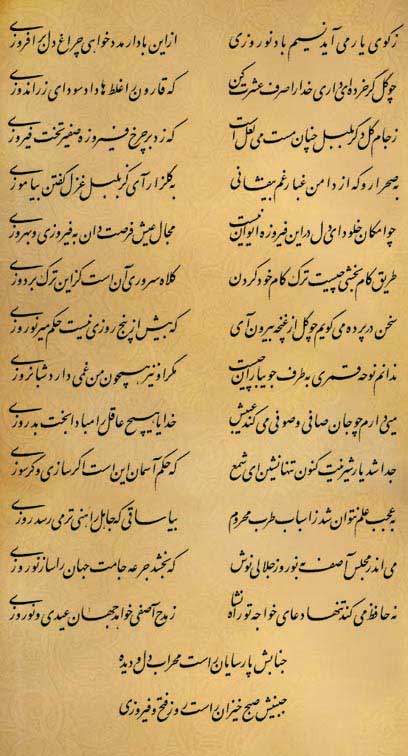 ز کوی یار می آید نسیم باد نوروزی از این باد ار مدد خواهی چراغ دل برافروزی
چو گل گر خرده ای داری خدا را صرف عشرت کن که قارون را غلط ها داد سودای زراندوزی
ز جام گل دگر بلبل چنان مست می لعل است که زد بر چرخ فیروزه صفیر تخت فیروزی
به صحرا رو که از دامن غبار غم بیفشانی به گلزار آی کز بلبل غزل گفتن بیاموزی
چو امکان خلود ای دل در این فیروزه ایوان نیست مجال عیش فرصت دان به فیروزی و بهروزی
طریق کام بخشی چیست ترک کام خود کردن کلاه سروری آن است کز این ترک بردوزی
سخن در پرده می گویم چو گل از غنچه بیرون آی که بیش از پنج روزی نیست حکم میر نوروزی
ندانم نوحه قمری به طرف جویباران چیست مگر او نیز همچون من غمی دارد شبانروزی
می ای دارم چو جان صافی و صوفی می کند عیبش خدایا هیچ عاقل را مبادا بخت بد روزی
جدا شد یار شیرینت کنون تنها نشین ای شمع که حکم آسمان این است اگر سازی و گر سوزی
به عجب علم نتوان شد ز اسباب طرب محروم بیا ساقی که جاهل را هنی تر می رسد روزی
می اندر مجلس آصف به نوروز جلالی نوش که بخشد جرعه جامت جهان را ساز نوروزی
نه حافظ می کند تنها دعای خواجه تورانشاه ز مدح آصفی خواهد جهان عیدی و نوروزی
جنابش پارسایان راست محراب دل و دیده
جبینش صبح خیزان راست روز فتح و فیروزی